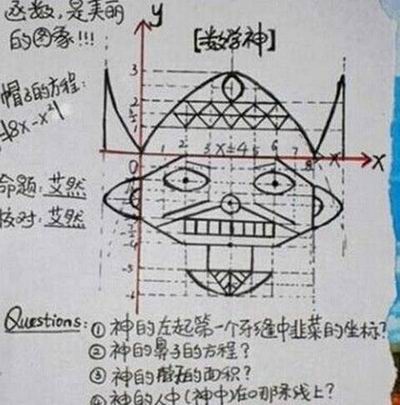 函数，是美丽
的图象!!!
[数学神]
帽子的方程:
y
3
2
1
1 2 3 x=4 5 6 7 8
x
0
命题: 艾然
校对: 艾然
-3
-4
Questions: ① 神的左起第一个牙缝中韭菜的坐标?
② 神的鼻子的方程?
③ 神的面积?
④ 神的人中(神中)在哪条线上?